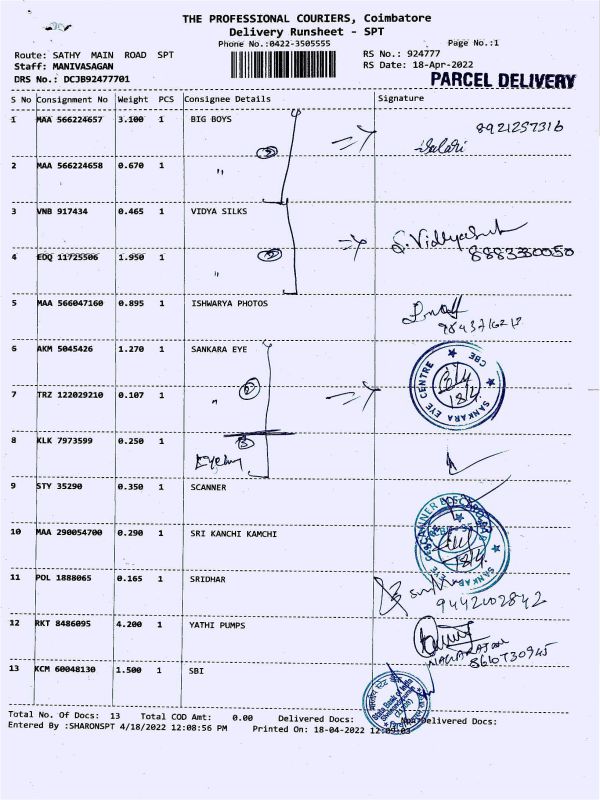 THE PROFESSIONAL COURIERS, Coimbatore
Delivery Runsheet - SPT
Phone No.:0422-3505555 Page No.:1
Route: SATHY MAIN ROAD SPT RS No.: 924777
Staff: MANIVASAGAN RS Date: 18-Apr-2022
DRS No.: DCJB92477701 PARCEL DELIVERY
S No Consignment No Weight PCS Consignee Details Signature
1 MAA 566224657 3.100 1 BIG BOYS 8921257316
2 MAA 566224658 0.670 1 "
3 VNB 917434 0.465 1 VIDYA SILKS S. Vidhya
4 EDQ 11725506 1.950 1 "
5 MAA 566047160 0.895 1 ISHWARYA PHOTOS
6 AKM 5045426 1.270 1 SANKARA EYE
7 TRZ 122029210 0.107 1 " SANKARA EYE CENTRE CBE
8 KLK 7973599 0.250 1
9 STY 35290 0.350 1 SCANNER
10 MAA 290054700 0.290 1 SRI KANCHI KAMCHI
11 POL 1888065 0.165 1 SRIDHAR 9442002842
12 RKT 8486095 4.200 1 YATHI PUMPS
NAGARAJAN
13 KCM 60048130 1.500 1 SBI
State Bank of India
Total No. Of Docs: 13 Total COD Amt: 0.00 Delivered Docs: Non-Delivered Docs:
Entered By :SHARONSPT 4/18/2022 12:08:56 PM Printed On: 18-04-2022 12:09:03